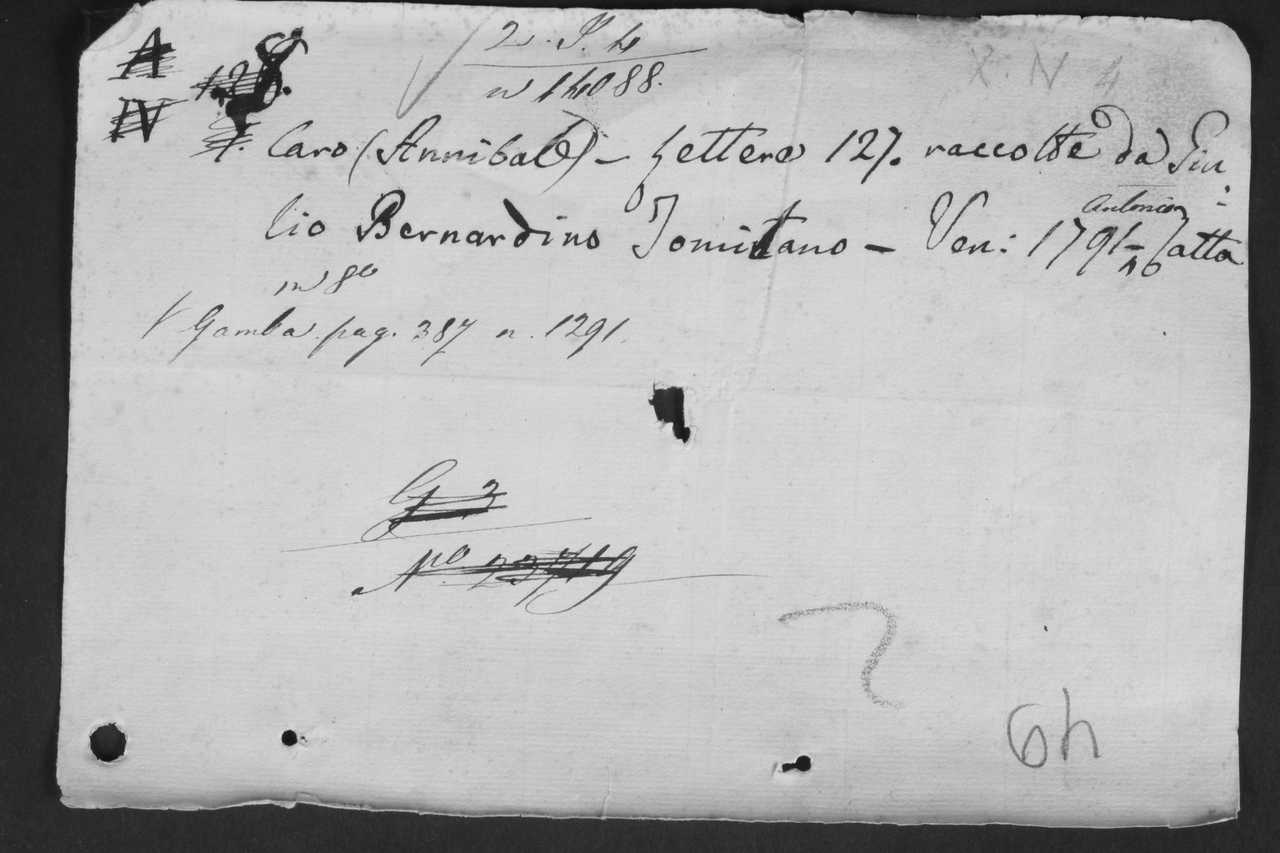 A
IV
8
2. P. 4
n 14088.
X. N 4
Caro (Annibale) – Lettere 127. raccolte da Giu-
lio Bernardino Tomitano – Ven: 1791 – Antonio Zatta
in 8º
V Gamba. pag. 387 n. 1291.
G 3
Nº
64